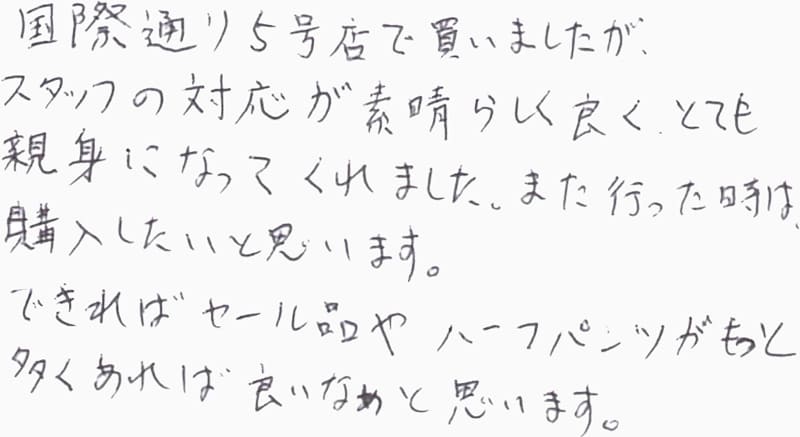 国際通り5号店で買いましたが、
スタッフの対応が素晴らしく良く、とても
親身になってくれました。また行った時は、
購入したいと思います。
できればセール品やハーフパンツがもっと
多くあれば良いなぁと思います。